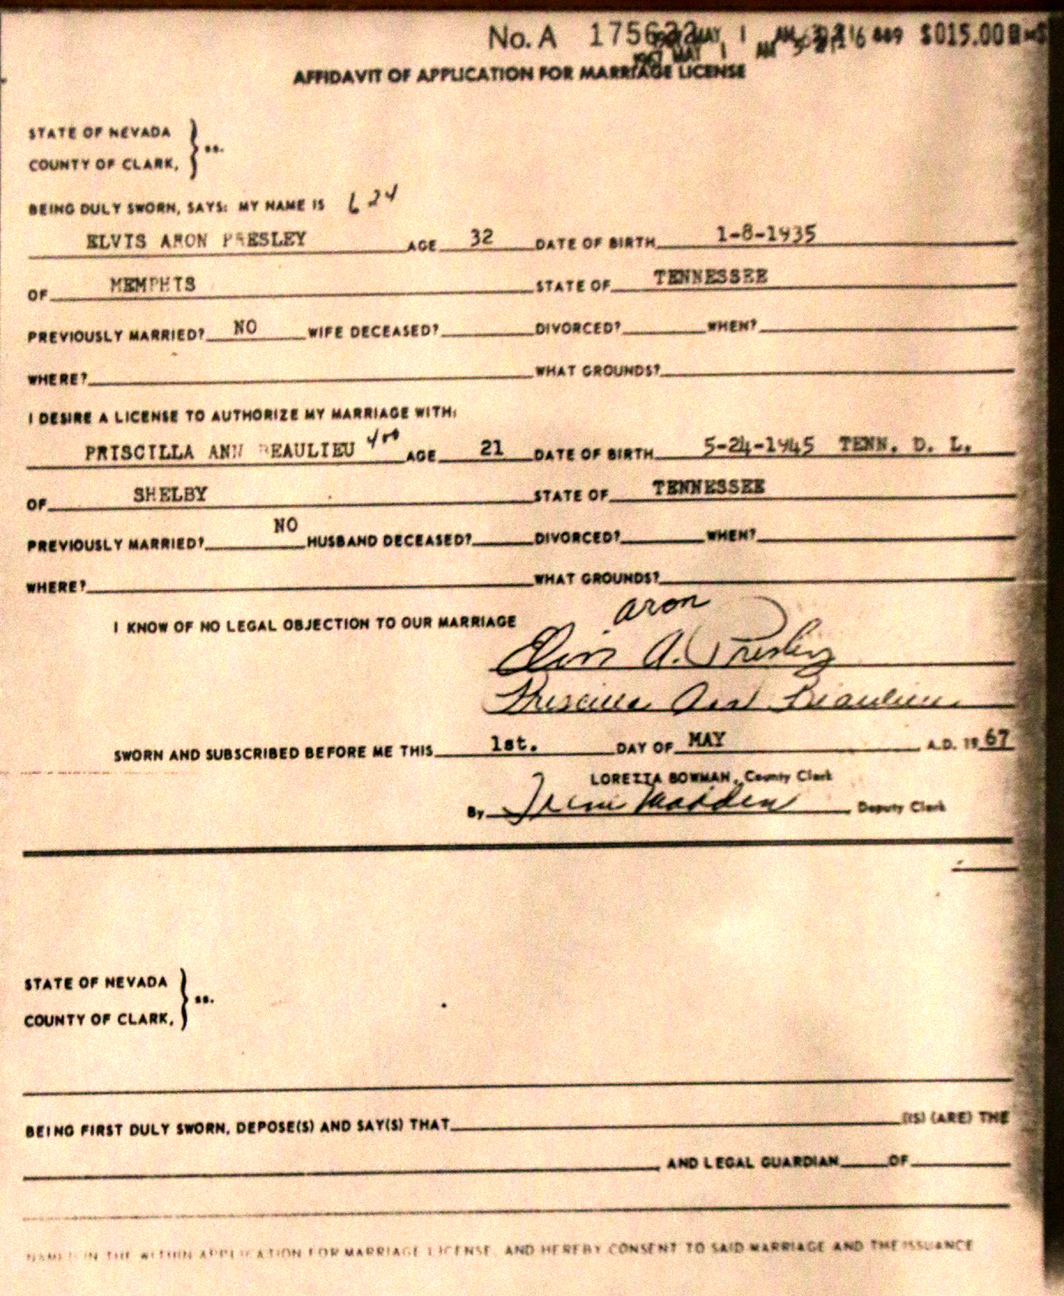 No. A 175632 MAY 1 AM $015.00
1967 MAY 1 AM
AFFIDAVIT OF APPLICATION FOR MARRIAGE LICENSE
STATE OF NEVADA
COUNTY OF CLARK, } ss.
BEING DULY SWORN, SAYS: MY NAME IS 624
ELVIS ARON PRESLEY AGE 32 DATE OF BIRTH 1-8-1935
OF MEMPHIS STATE OF TENNESSEE
PREVIOUSLY MARRIED? NO WIFE DECEASED? DIVORCED? WHEN?
WHERE? WHAT GROUNDS?
I DESIRE A LICENSE TO AUTHORIZE MY MARRIAGE WITH:
PRISCILLA ANN BEAULIEU 400 AGE 21 DATE OF BIRTH 5-24-1945 TENN. D. L.
OF SHELBY STATE OF TENNESSEE
PREVIOUSLY MARRIED? NO HUSBAND DECEASED? DIVORCED? WHEN?
WHERE? WHAT GROUNDS?
I KNOW OF NO LEGAL OBJECTION TO OUR MARRIAGE
aron
Elvis A. Presley
Priscilla Ann Beaulieu
SWORN AND SUBSCRIBED BEFORE ME THIS 1st. DAY OF MAY A.D. 1967
LORETTA BOWMAN, County Clerk
By Irene Madden Deputy Clerk
STATE OF NEVADA
COUNTY OF CLARK, } ss.
BEING FIRST DULY SWORN, DEPOSE(S) AND SAY(S) THAT (IS) (ARE) THE
AND LEGAL GUARDIAN OF
NAMED IN THE WITHIN APPLICATION FOR MARRIAGE LICENSE, AND HEREBY CONSENT TO SAID MARRIAGE AND THE ISSUANCE